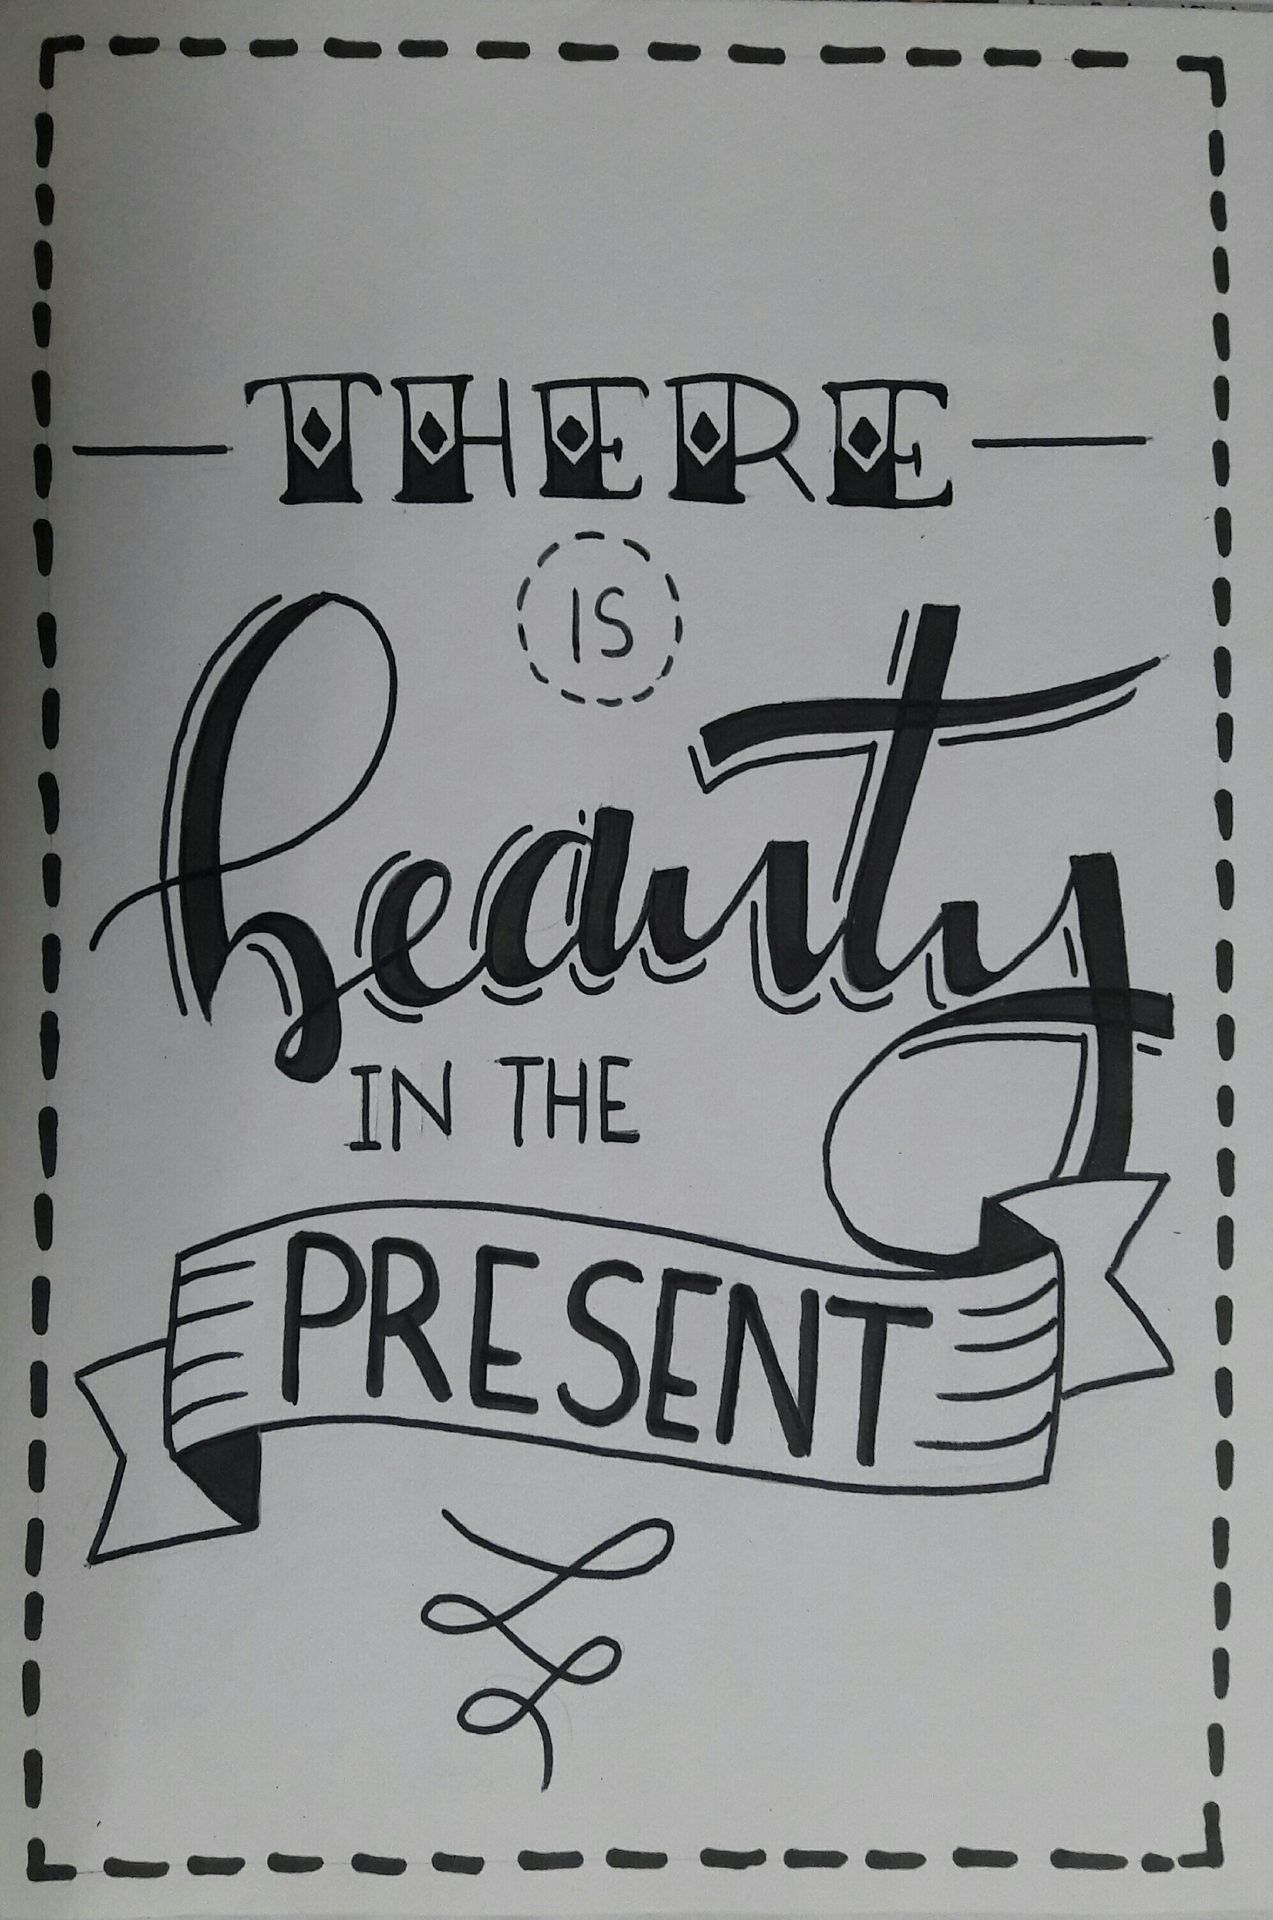 THERE
IS
beauty
IN THE
PRESENT